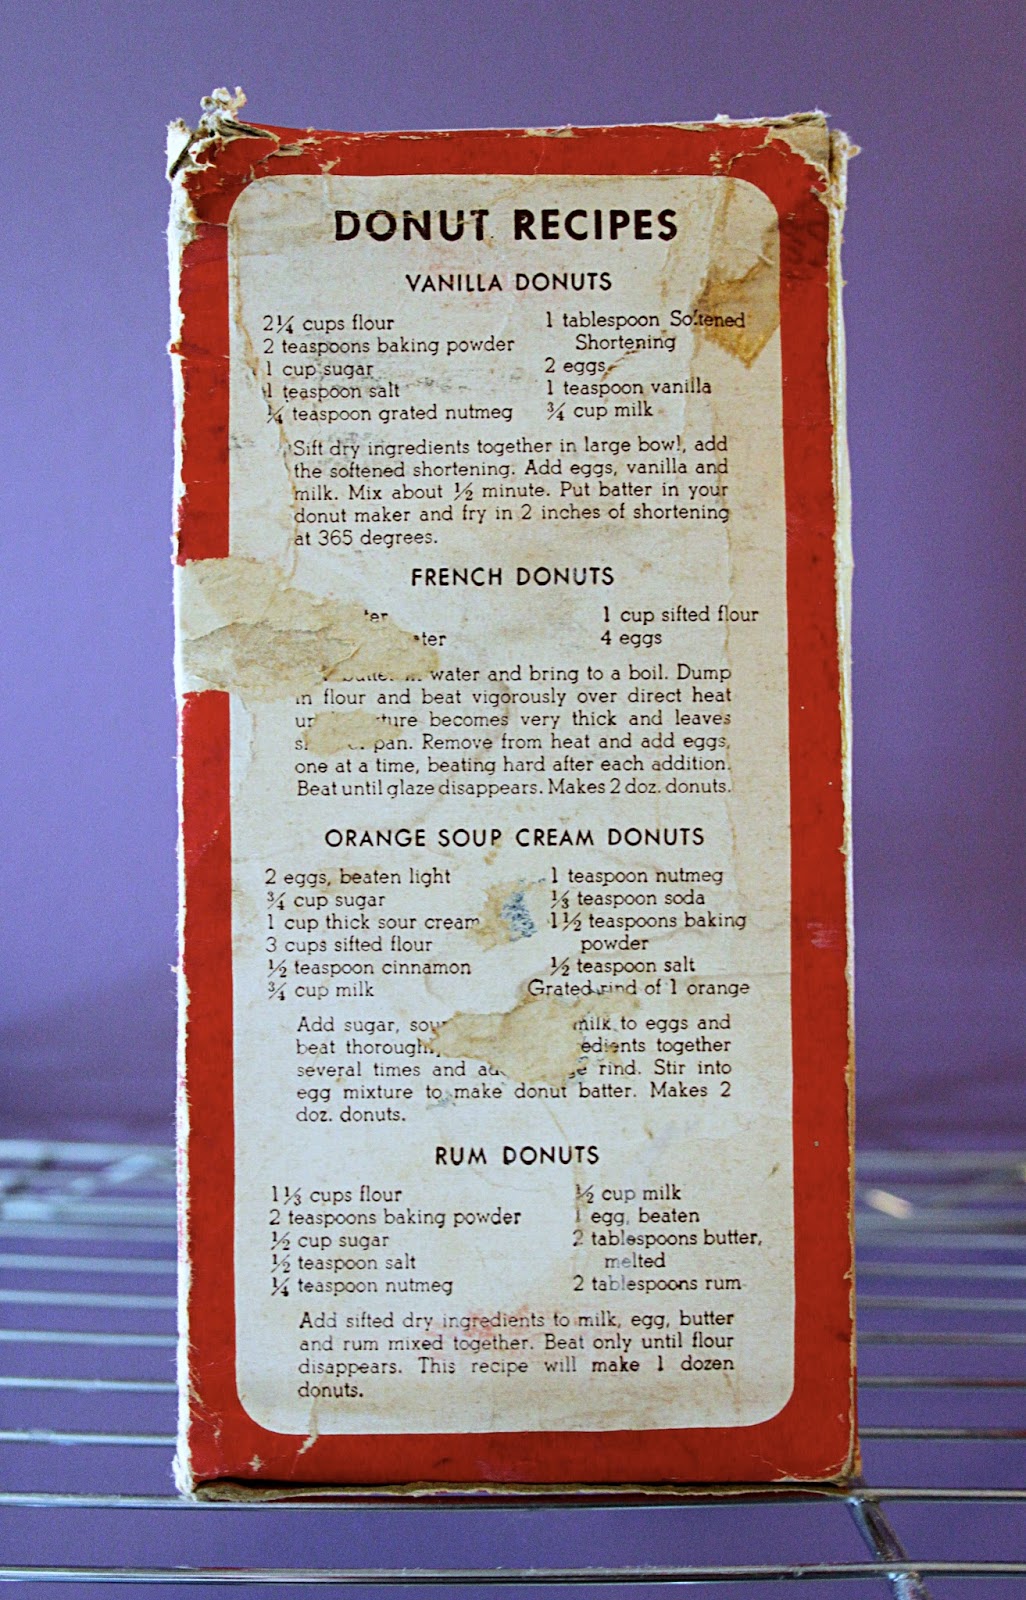 DONUT RECIPES
VANILLA DONUTS
2¼ cups flour
2 teaspoons baking powder
1 cup sugar
1 teaspoon salt
¼ teaspoon grated nutmeg
1 tablespoon Softened
Shortening
2 eggs
1 teaspoon vanilla
¾ cup milk
Sift dry ingredients together in large bowl, add
the softened shortening. Add eggs, vanilla and
milk. Mix about ½ minute. Put batter in your
donut maker and fry in 2 inches of shortening
at 365 degrees.
FRENCH DONUTS
1 cup sifted flour
4 eggs
water and bring to a boil. Dump
in flour and beat vigorously over direct heat
becomes very thick and leaves
pan. Remove from heat and add eggs,
one at a time, beating hard after each addition.
Beat until glaze disappears. Makes 2 doz. donuts.
ORANGE SOUP CREAM DONUTS
2 eggs, beaten light
¾ cup sugar
1 cup thick sour cream
3 cups sifted flour
½ teaspoon cinnamon
¾ cup milk
1 teaspoon nutmeg
⅓ teaspoon soda
1½ teaspoons baking
powder
½ teaspoon salt
Grated rind of 1 orange
Add sugar, milk to eggs and
beat thoroughly together
several times and rind. Stir into
egg mixture to make donut batter. Makes 2
doz. donuts.
RUM DONUTS
1⅓ cups flour
2 teaspoons baking powder
½ cup sugar
½ teaspoon salt
¼ teaspoon nutmeg
½ cup milk
1 egg, beaten
2 tablespoons butter,
melted
2 tablespoons rum
Add sifted dry ingredients to milk, egg, butter
and rum mixed together. Beat only until flour
disappears. This recipe will make 1 dozen
donuts.